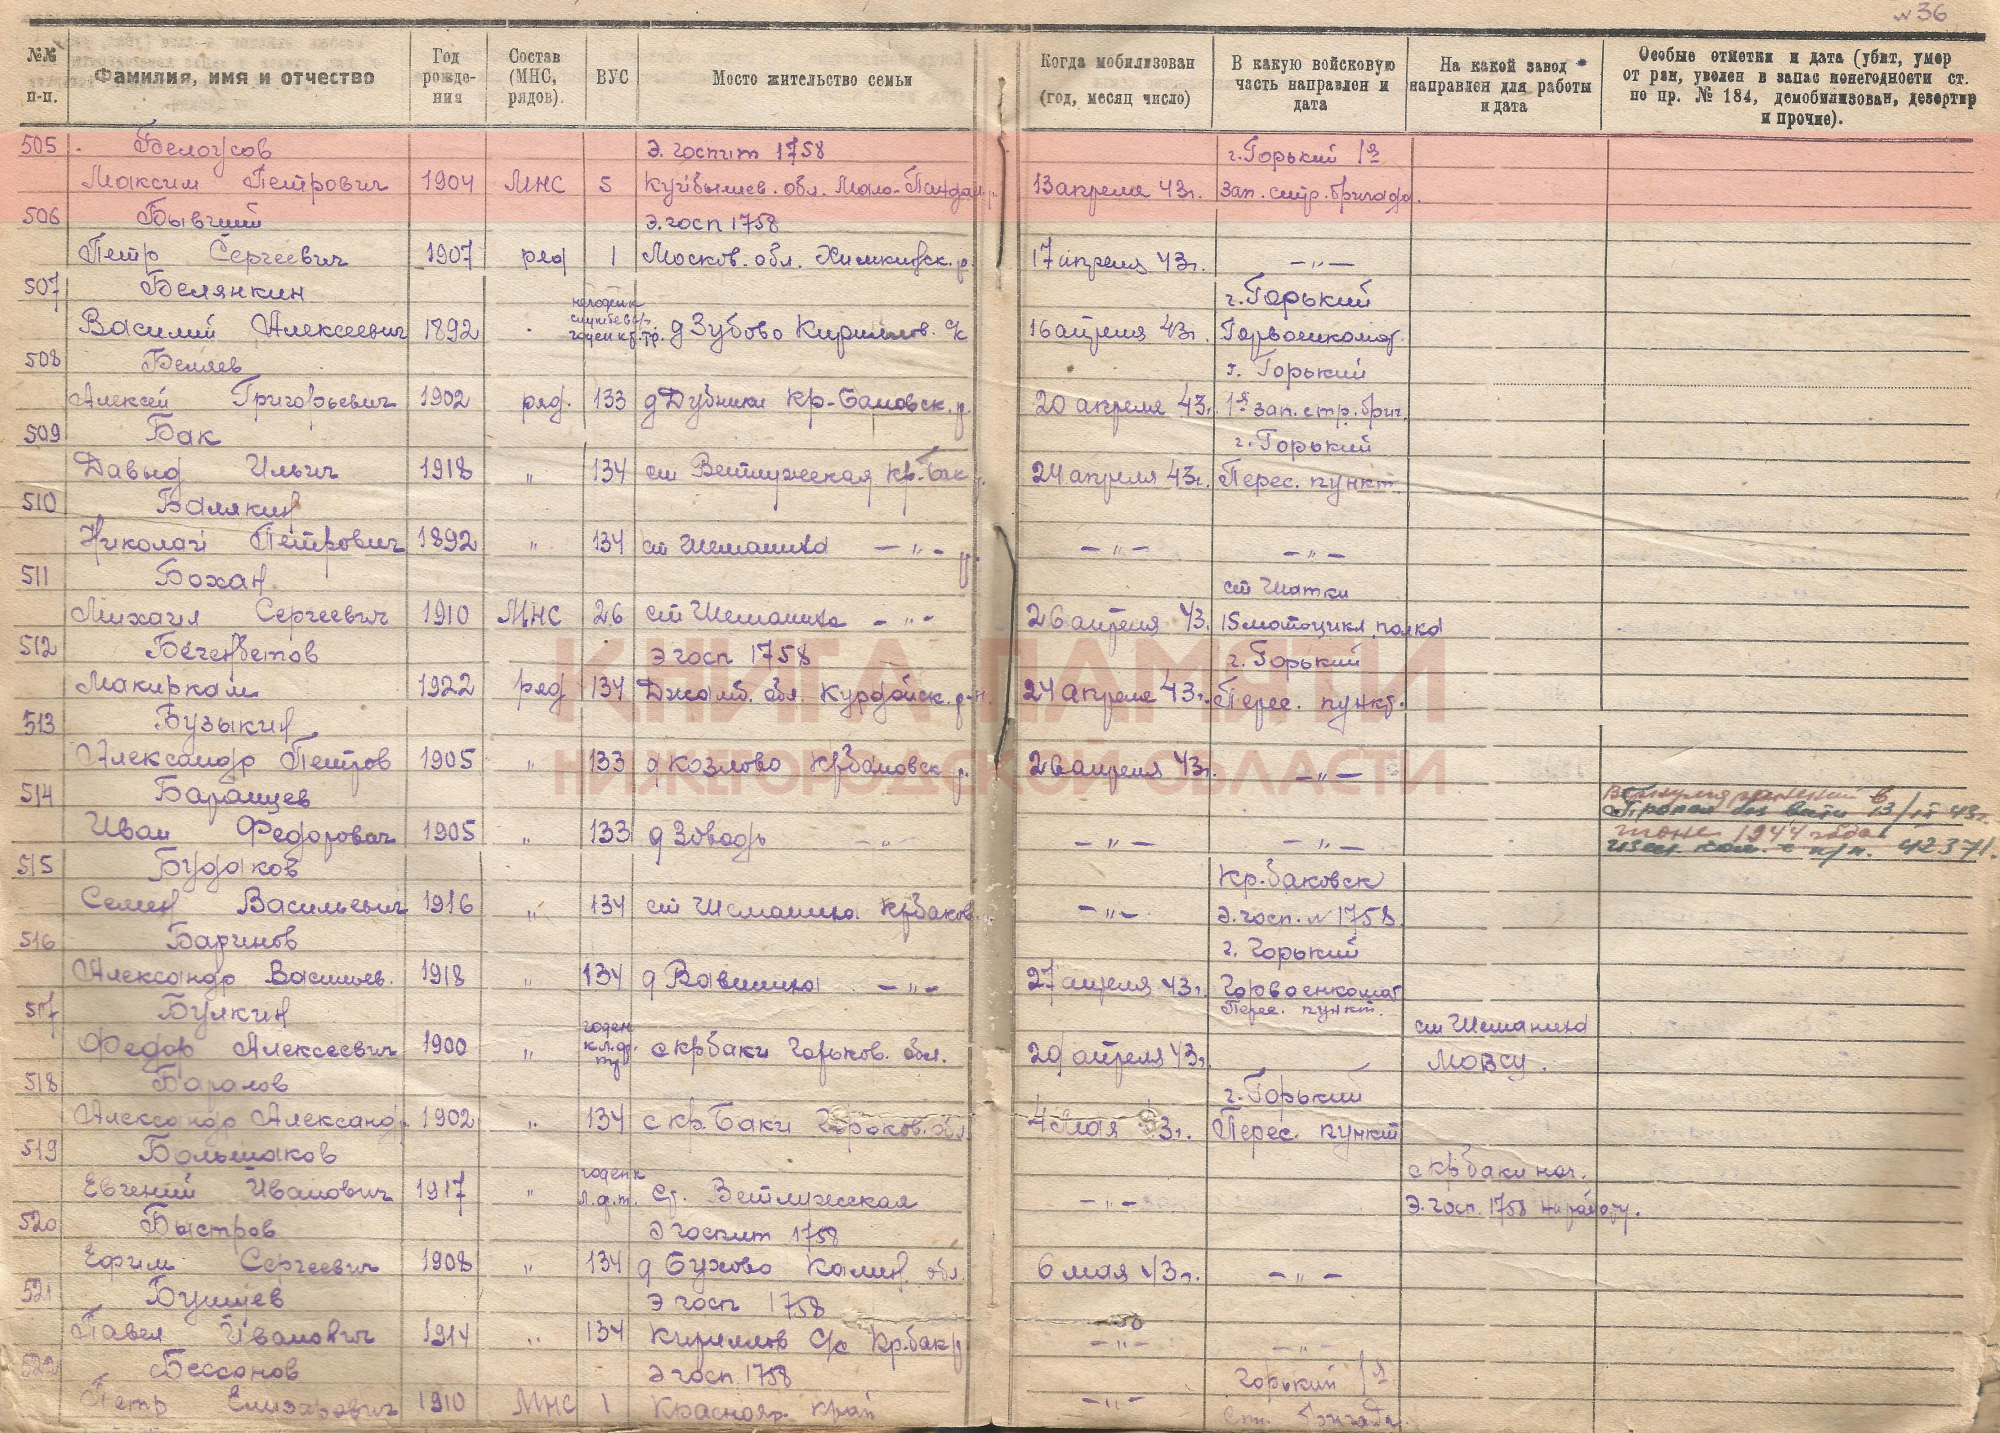 № 36
№№ п-п.
Фамилия, имя и отчество
Год рожде-ния
Состав (МНС, рядов).
ВУС
Мосто жительство семьи
Когда мобилизован (год, месяц число)
В какую войсковую часть направлен и дата
На какой завод направлен для работы и дата
Особые отметки и дата (убит, умер от ран, уволен в запас понегодности ст. по пр. № 184, демобилизован, дезертир и прочие).
505 Белоусов Э. госпит 1758 г. Горький 1я
Максим Петрович 1904 МНС 5 Куйбышев. обл. Мало- 13 апреля 43г. Зап. стр. бригада.
506 Бывший Э. госп 1758
Петр Сергеевич 1907 ряд 1 Москов. обл. Химкинск. р. 17 апреля 43г. — „ —
507 Белянкин негоден к г. Горький
Василий Алексеевич 1892 службе годен д Зубово Кириллов. с/с 16 апреля 43г. Горвоенкомат.
508 Беляев г. Горький
Алексей Григорьевич 1902 ряд. 133 д Дубники Кр-Баковск. р. 20 апреля 43г. 1я зап. стр. бриг.
509 Бак г. Горький
Давыд Ильич 1918 „ 134 ст Ветлужская Кр. Бак р. 24 апреля 43г. Перес. пункт
510 Валякин
Николай Петрович 1892 „ 134 ст Шеманиха — „ — р. — „ — — „ —
511 Бохан ст Шатки
Михаил Сергеевич 1910 МНС 26 ст Шеманиха — „ — 26 апреля 43. 15 мотоцикл. полка
512 Бегенбетов Э госп 1758 г. Горький
Макиркам 1922 ряд 134 Джамб. обл. Курдайск. р-н. 24 апреля 43г. Перес. пункт.
513 Бузыкин
Александр Петров 1905 „ 133 д Козлово КрБаковск р. 26 апреля 43г. — „ —
514 Баранцев
Иван Федорович 1905 „ 133 д Зоводь — „ — — „ — — „ —
Пропал без вести 13/ 43г.
июне 1944 года
п/п. 42371.
515 Будаков Кр. Баковск
Семен Васильевич 1916 „ 134 ст Шеманиха КрБаков. — „ — Э. госп. № 1758
516 Баринов г. Горький
Александр Васильев. 1918 „ 134 д Вавилиха — „ — 27 апреля 43г. Горвоенкомат
517 Булкин годен Перес. пункт. ст Шеманиха
Федор Алексеевич 1900 „ с КрБаки Горьков. обл. 29 апреля 43г. МОВСУ.
518 Баралов г. Горький
Александр Александр. 1902 „ 134 с Кр. Баки Горьков. обл 4 мая 43г. Перес. пункт
519 Большаков годен к с КрБаки нач.
Евгений Иванович 1917 „ Ст. Ветлужская — „ — Э. госп. 1758 на работу.
520 Быстров Э госпит 1758
Ефим Сергеевич 1908 „ 134 д Бухово Калин. обл. 6 мая 43г. — „ —
521 Бушуев Э госп 1758
Павел Иванович 1914 „ 134 Кириллов С/с Кр. бак р — „ — — „ —
522 Бессонов Э госп. 1758 Горький 1я
Петр Елизарович 1910 МНС 1 Краснояр. край — „ — бригада.
КНИГА ПАМЯТИ
НИЖЕГОРОДСКОЙ ОБЛАСТИ